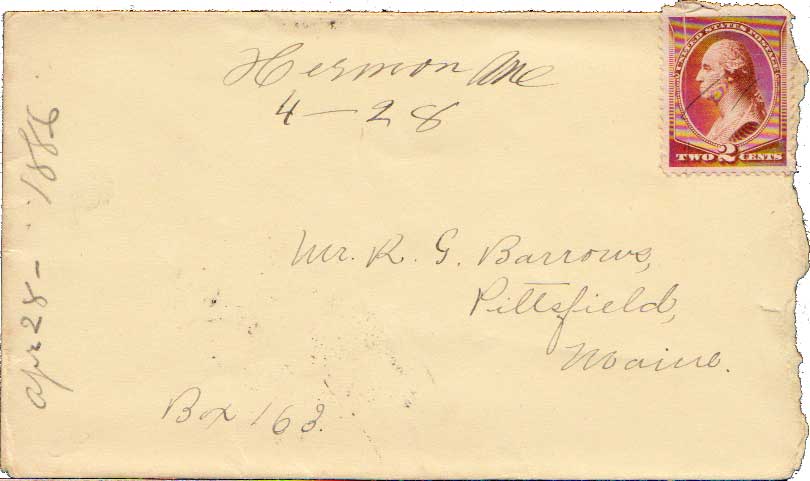 Hermon Me
4 - 28
UNITED STATES POSTAGE
TWO 2 CENTS
apr 28 - 1886
Mr. R. G. Barrows,
Pittsfield,
Maine.
Box 163.